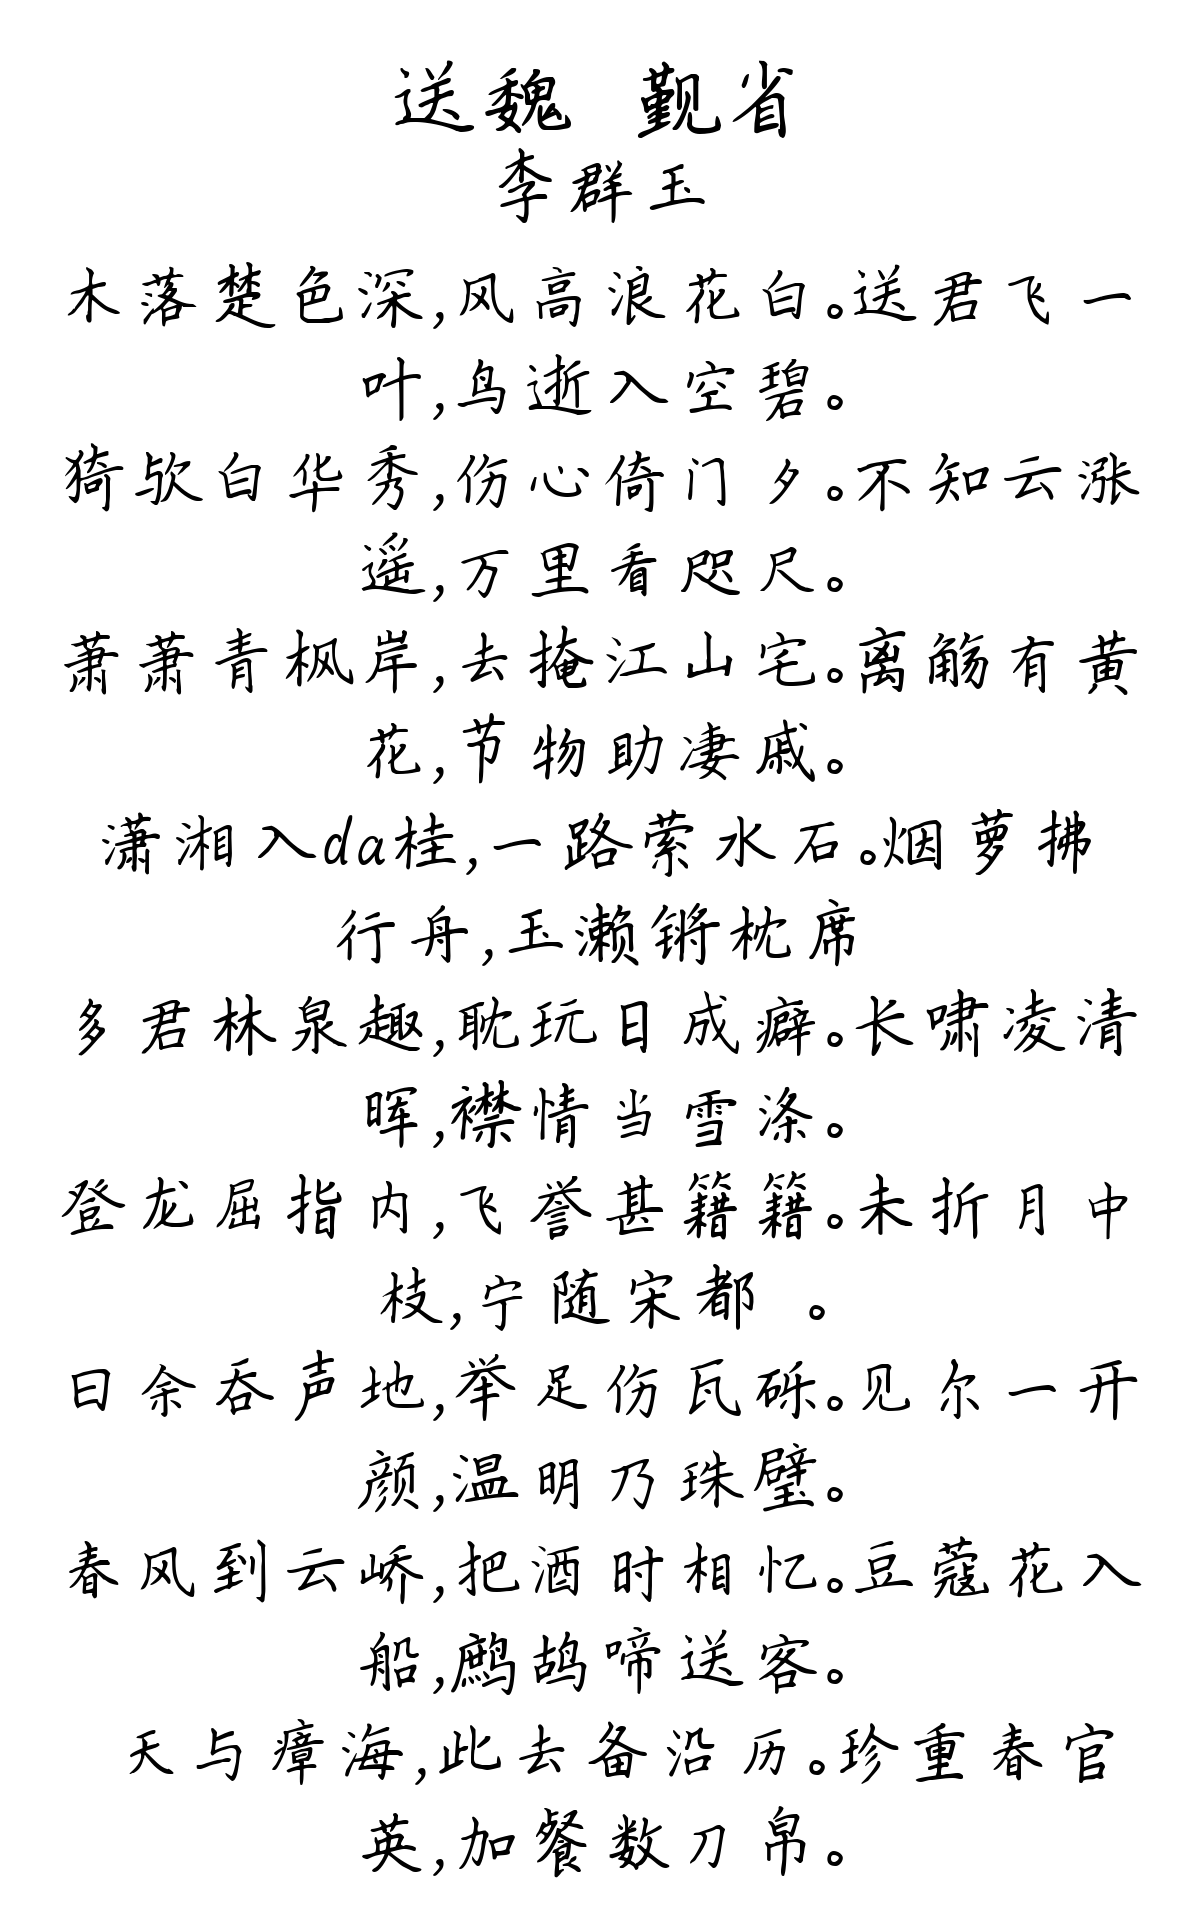 送魏　觐省
李群玉
木落楚色深,风高浪花白。送君飞一
叶,鸟逝入空碧。
猗欤白华秀,伤心倚门夕。不知云涨
遥,万里看咫尺。
萧萧青枫岸,去掩江山宅。离觞有黄
花,节物助凄戚。
潇湘入da桂,一路萦水石。烟萝拂
行舟,玉濑锵枕席
多君林泉趣,耽玩日成癖。长啸凌清
晖,襟情当雪涤。
登龙屈指内,飞誉甚籍籍。未折月中
枝,宁随宋都　。
曰余吞声地,举足伤瓦砾。见尔一开
颜,温明乃珠璧。
春风到云峤,把酒时相忆。豆蔻花入
船,鹧鸪啼送客。
天与瘴海,此去备沿历。珍重春官
英,加餐数刀帛。